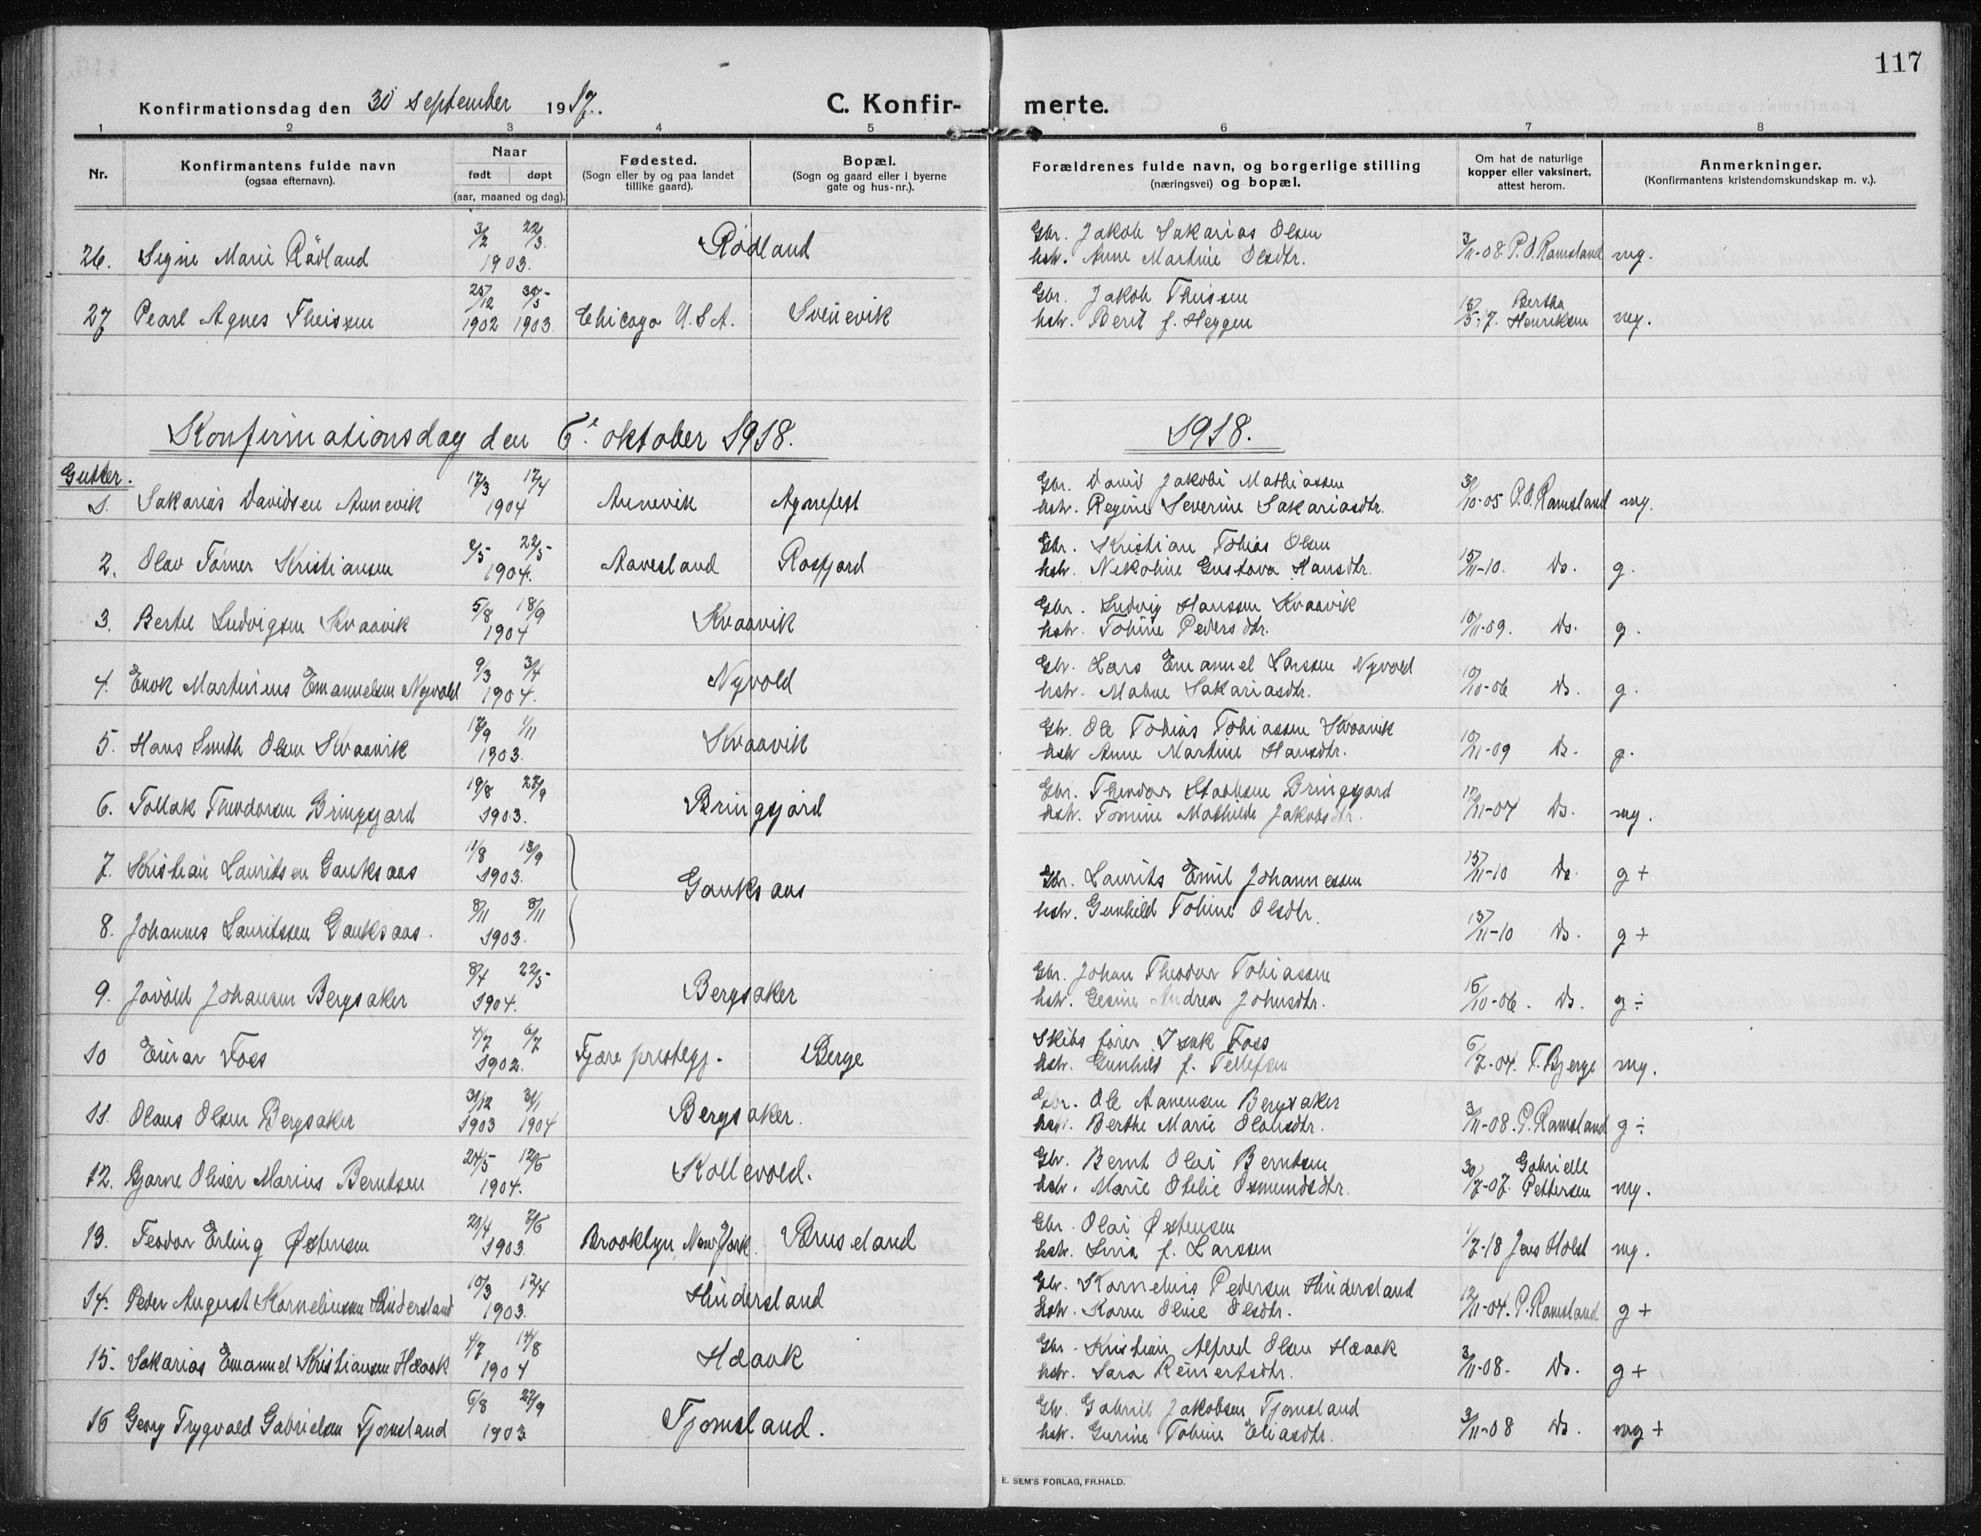 117
Konfirmationsdag den 30 September 1917.
C. Konfirmerte.
1 2 3 4 5 6 7 8
Nr.
Konfirmantens fulde navn
(ogsaa efternavn).
Naar
født døpt
(aar, maaned og dag).
Fødested.
(Sogn eller by og paa landet
tillike gaard).
Bopæl.
(Sogn og gaard eller i byerne
gate og hus-nr.).
Forældrenes fulde navn, og borgerlige stilling
(næringsvei) og bopæl.
Om hat de naturlige
kopper eller vaksinert,
attest herom.
Anmerkninger.
(Konfirmantens kristendomskundskap m. v.).
3/2 22/3 Gbr. Jakob Sakarias Olsen
26. Signe Marie Rödland 1903. Rödland hstr. Anne Martine Olsdtr. 3/11-08. P. O. Ramsland mg.
25/12 30/5 Gbr. Jakob Theissen Bertha
27 Pearl Agnes Theissen 1902 1903. Chicago U.S.A. Svenevik hstr. Berit f. Heggen 15/5-17. Henriksen mg.
Konfirmationsdag den 6. oktober 1918. 1918.
Gutter.
17/3 17/4 Gbr. David Jakobi Mathiassen
1. Sakarias Davidsen Aunevik 1904 Aunevik Agnefest hstr. Regine Severine Sakariasdtr. 31/10-05 P. O. Ramsland mg.
2/5 22/5 Gbr. Kristian Tobias Olsen
2. Olav Tørner Kristiansen 1904. Aavesland Rosfjord hstr. Nikoline Gustava Hansdtr. 15/11-10. Do. g.
5/8 18/9 Gbr. Ludvig Hanssen Kvaavik
3. Bertel Ludvigsen Kvaavik 1904 Kvaavik hstr. Tobine Pedersdtr. 10/11-09. Do. g.
9/3 3/4 Gbr. Lars Emanuel Larssen Nyvold
4. Enok Martinius Emanuelsen Nyvold 1904. Nyvold hstr. Maline Sakariasdtr. 10/10-06 Do. g.
17/9 1/11 Gbr. Ole Tobias Tobiassen Kvaavik
5. Hans Smith Olsen Kvaavik 1903. Kvaavik hstr Anne Martine Hansdtr. 10/11-09 Do. g.
19/8 27/9 Gbr. Theodor Staalesen Bringsjord
6. Tollak Theodorsen Bringsjord 1903. Bringsjord hstr. Tomine Mathilde Jakobsdtr. 12/11-04 Do. mg.
11/8 13/9
7. Kristian Lauritsen Gauksaas 1903. Gauksaas Gbr. Laurits Emil Johannessen 15/11-10 Do. g +
8/11 8/11 hstr. Gunhild Tobine Olsdtr.
8. Johannes Lauritssen Gauksaas. 1903. 15/11-10 Do. g +
8/4 22/5 Gbr. Johan Theodor Tobiassen
9. Jovald Johansen Bergsaker 1904. Bergsaker hstr. Gesine Andrea Johnsdtr. 16/10-06. Do. g ÷
4/7 6/7 Skibsfører Isak Foss
10 Einar Foss 1902. Fjære prestegj. Berge hstr. Gunhild f. Tellefsen 6/7-04. F. Bjerge mg.
31/12 31/1 Gbr. Ole Aanensen Bergsaker
11. Olaus Olsen Bergsaker 1903 1904 Bergsaker. hstr. Berthe Marie Olausdtr. 3/11-08. P. Ramsland g ÷
24/5 12/6 Gbr. Bernt Olai Berntsen Gabrielle
12. Bjarne Olivier Marius Berntsen 1904. Kollevold. hstr. Marie Otelie Osmundsdtr. 30/7-07. Pettersen mg.
20/4 7/6 Gbr. Olai Østensen
13. Feodor Erling Østensen 1903. Brooklyn, New York. Bruseland hstr. Lina f. Larssen 1/7-18 Jens Holst mg.
10/3 12/4 Gbr. Kornelius Pedersen Hindersland
14. Peder August Korneliussen Hindersland 1903. Hindersland hstr. Karen Oline Olsdtr. 12/11-04. P. Ramsland g +
4/7 14/8 Gbr. Kristian Alfred Olsen Haaak
15. Sakarias Emanuel Kristiansen Haaak 1904 Haaak hstr. Sara Reinertsdtr. 3/11-08. Do. g +
6/8 27/9 Gbr. Gabriel Jakobsen Tjomsland
16 Georg Trygvald Gabrielsen Tjomsland 1903. Tjomsland. hstr. Gurine Tobine Eliasdtr. 3/11-08 Do. mg +
E. SEM'S FORLAG, FR.HALD.